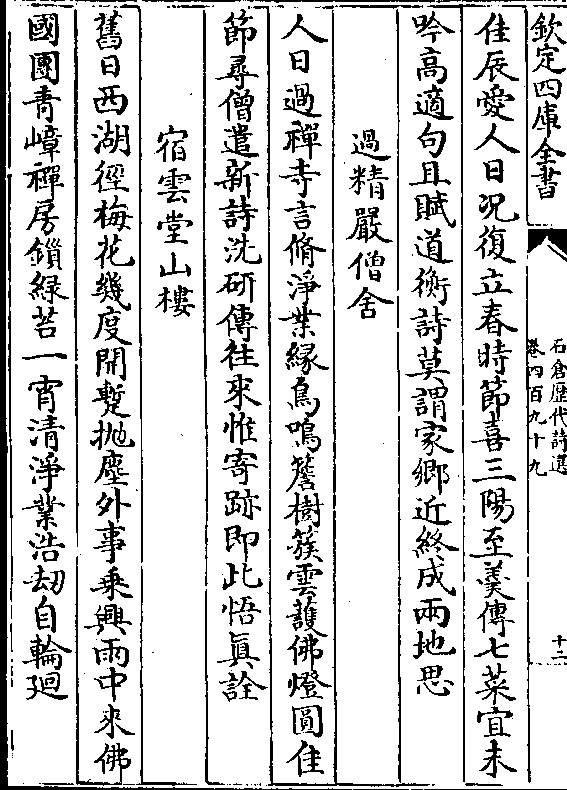 欽定四庫全書
石倉歷代詩選
卷四百九十九
十二
佳辰愛人日况復立春時節喜三陽至羮傳七菜宜未
吟高適句且賦道衡詩莫謂家鄉近終成兩地思
過精嚴僧舍
人日過禪寺言脩淨業縁鳥鳴簷樹蔟雲護佛燈圓佳
節尋僧遣新詩洗研傳往來惟寄跡即此悟眞詮
宿雲堂山樓
舊日西湖徑梅花幾度開蹔抛塵外事乗興雨中來佛
國團青嶂禪房鎻緑苔一宵清淨業浩刼自輪廻